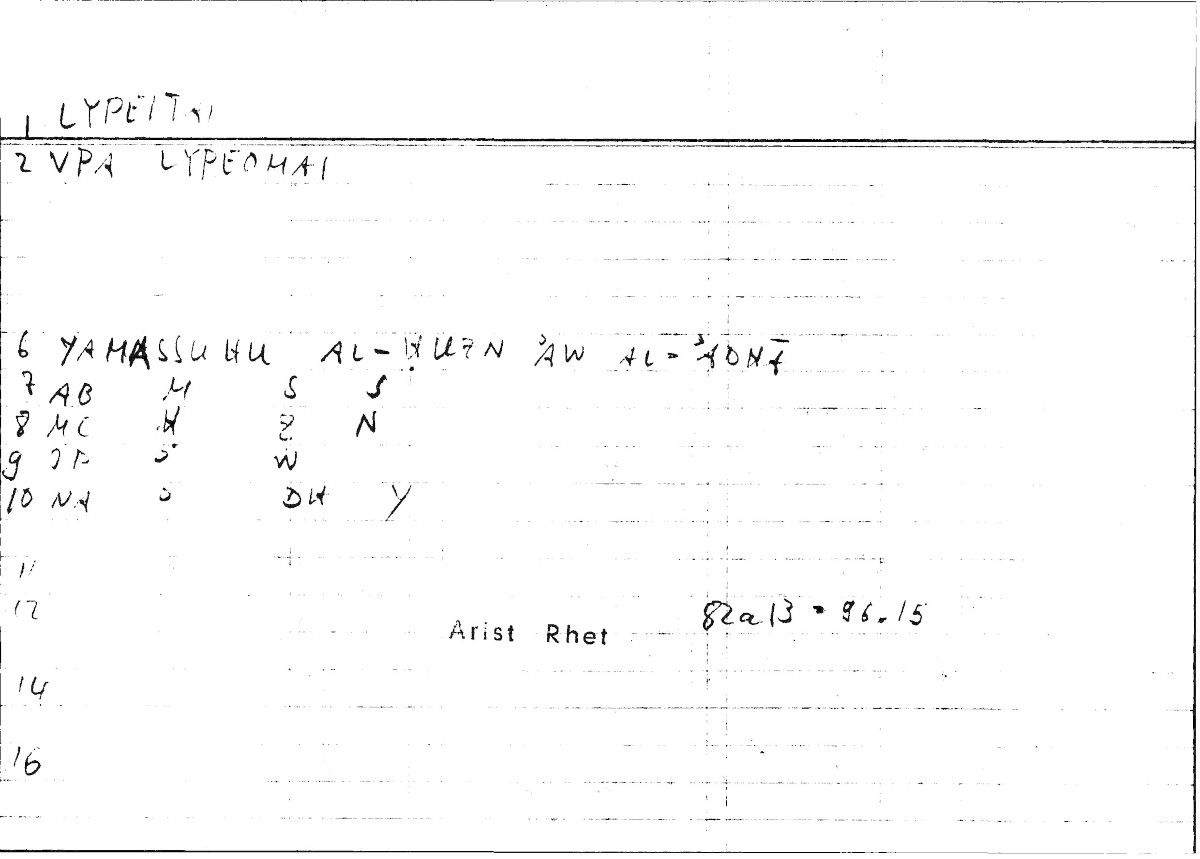 1 LYPEITAI
2 VPA LYPEOMAI
6 YAMASSUHU AL-ḤUZN ʾAW AL-ʾADHĀ
7 AB M S S
8 MC Ḥ Z N
9 ʾ W
10 NA ʾ DH Y
11
12
Arist Rhet 82a13 = 96.15
14
16